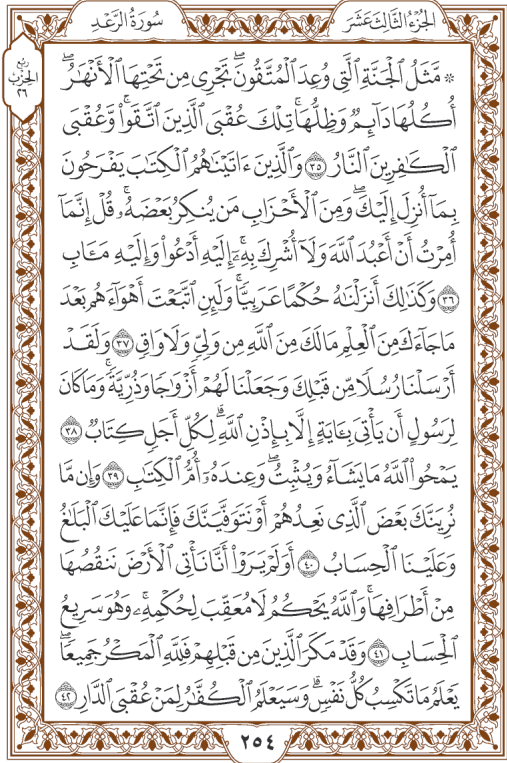 الجزء الثالث عشر
سورة الرعد
ربع
الحزب
٢٦
۞ مَّثَلُ ٱلْجَنَّةِ ٱلَّتِى وُعِدَ ٱلْمُتَّقُونَ ۖ تَجْرِى مِن تَحْتِهَا ٱلْأَنْهَٰرُ ۖ
أُكُلُهَا دَآئِمٌ وَظِلُّهَا ۚ تِلْكَ عُقْبَى ٱلَّذِينَ ٱتَّقَوا۟ ۖ وَّعُقْبَى
ٱلْكَٰفِرِينَ ٱلنَّارُ ٣٥ وَٱلَّذِينَ ءَاتَيْنَٰهُمُ ٱلْكِتَٰبَ يَفْرَحُونَ
بِمَآ أُنزِلَ إِلَيْكَ ۖ وَمِنَ ٱلْأَحْزَابِ مَن يُنكِرُ بَعْضَهُۥ ۚ قُلْ إِنَّمَآ
أُمِرْتُ أَنْ أَعْبُدَ ٱللَّهَ وَلَآ أُشْرِكَ بِهِۦٓ ۚ إِلَيْهِ أَدْعُوا۟ وَإِلَيْهِ مَـَٔابِ
٣٦ وَكَذَٰلِكَ أَنزَلْنَٰهُ حُكْمًا عَرَبِيًّا ۚ وَلَئِنِ ٱتَّبَعْتَ أَهْوَآءَهُم بَعْدَ
مَا جَآءَكَ مِنَ ٱلْعِلْمِ مَا لَكَ مِنَ ٱللَّهِ مِن وَلِىٍّ وَلَا وَاقٍ ٣٧ وَلَقَدْ
أَرْسَلْنَا رُسُلًا مِّن قَبْلِكَ وَجَعَلْنَا لَهُمْ أَزْوَٰجًا وَذُرِّيَّةً ۚ وَمَا كَانَ
لِرَسُولٍ أَن يَأْتِىَ بِـَٔايَةٍ إِلَّا بِإِذْنِ ٱللَّهِ ۗ لِكُلِّ أَجَلٍ كِتَابٌ ٣٨
يَمْحُوا۟ ٱللَّهُ مَا يَشَآءُ وَيُثْبِتُ ۖ وَعِندَهُۥٓ أُمُّ ٱلْكِتَٰبِ ٣٩ وَإِن مَّا
نُرِيَنَّكَ بَعْضَ ٱلَّذِى نَعِدُهُمْ أَوْ نَتَوَفَّيَنَّكَ فَإِنَّمَا عَلَيْكَ ٱلْبَلَٰغُ
وَعَلَيْنَا ٱلْحِسَابُ ٤٠ أَوَلَمْ يَرَوْا۟ أَنَّا نَأْتِى ٱلْأَرْضَ نَنقُصُهَا
مِنْ أَطْرَافِهَا ۚ وَٱللَّهُ يَحْكُمُ لَا مُعَقِّبَ لِحُكْمِهِۦ ۚ وَهُوَ سَرِيعُ
ٱلْحِسَابِ ٤١ وَقَدْ مَكَرَ ٱلَّذِينَ مِن قَبْلِهِمْ فَلِلَّهِ ٱلْمَكْرُ جَمِيعًا ۖ
يَعْلَمُ مَا تَكْسِبُ كُلُّ نَفْسٍ ۗ وَسَيَعْلَمُ ٱلْكُفَّٰرُ لِمَنْ عُقْبَى ٱلدَّارِ ٤٢
٢٥٤